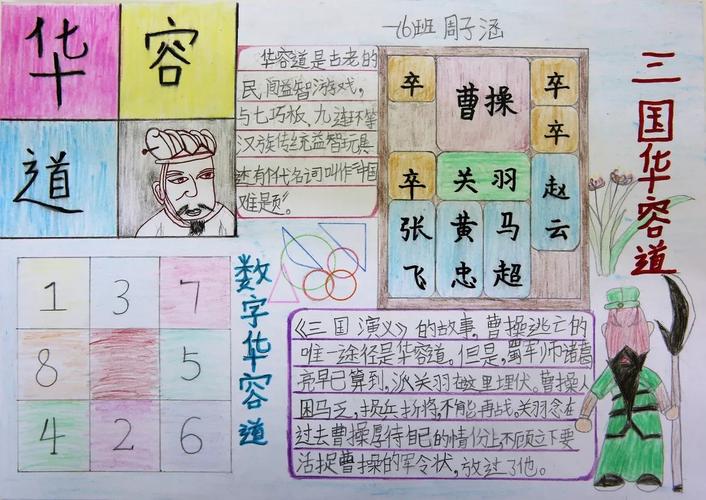 华 容
道
一(6)班 周子涵
华容道是古老的
民间益智游戏,
与七巧板、九连环等
汉族传统益智玩具
还有个代名词叫作“中国
难题”。
卒 曹操 卒
卒
卒 关羽 赵云
张飞 黄忠 马超
三国华容道
1 3 7
8 5
4 2 6
数字华容道
《三国演义》的故事,曹操逃亡的
唯一途径是华容道。但是,蜀军师诸葛
亮早已算到,派关羽在这里埋伏。曹操人
困马乏,损兵折将,不能再战。关羽念在
过去曹操厚待自己的情份上不顾立下要
活捉曹操的军令状,放过了他。